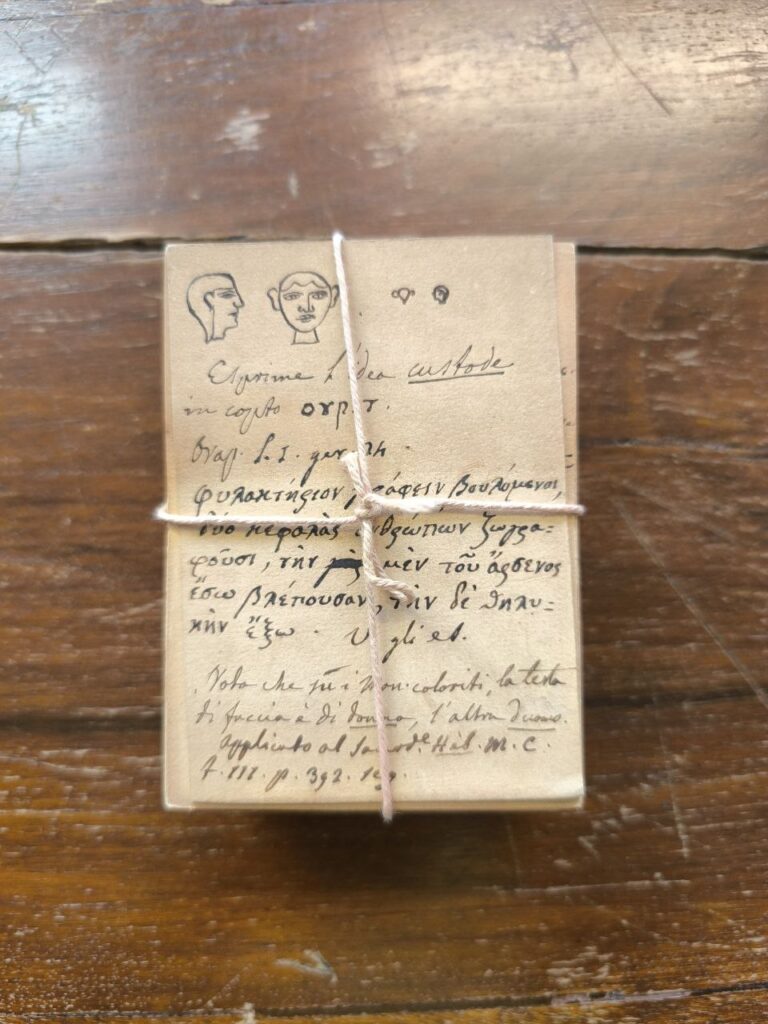 Esprime l'idea custode
in copto ουριτ.
Orap. L. I. ger. 24.
φυλακτήριον γράφειν βουλόμενοι,
δύο κεφαλὰς ἀνθρώπων ζωγρα=
φοῦσι, τὴν μὲν τοῦ ἄρσενος
ἔσω βλέπουσαν, τὴν δὲ θηλυ=
κὴν ἔξω. V. gli es.
Nota che i mon. coloriti, la testa
di faccia è di donna, l'altra d'uomo.
Applicato al M. C.
T. III. p. 392.